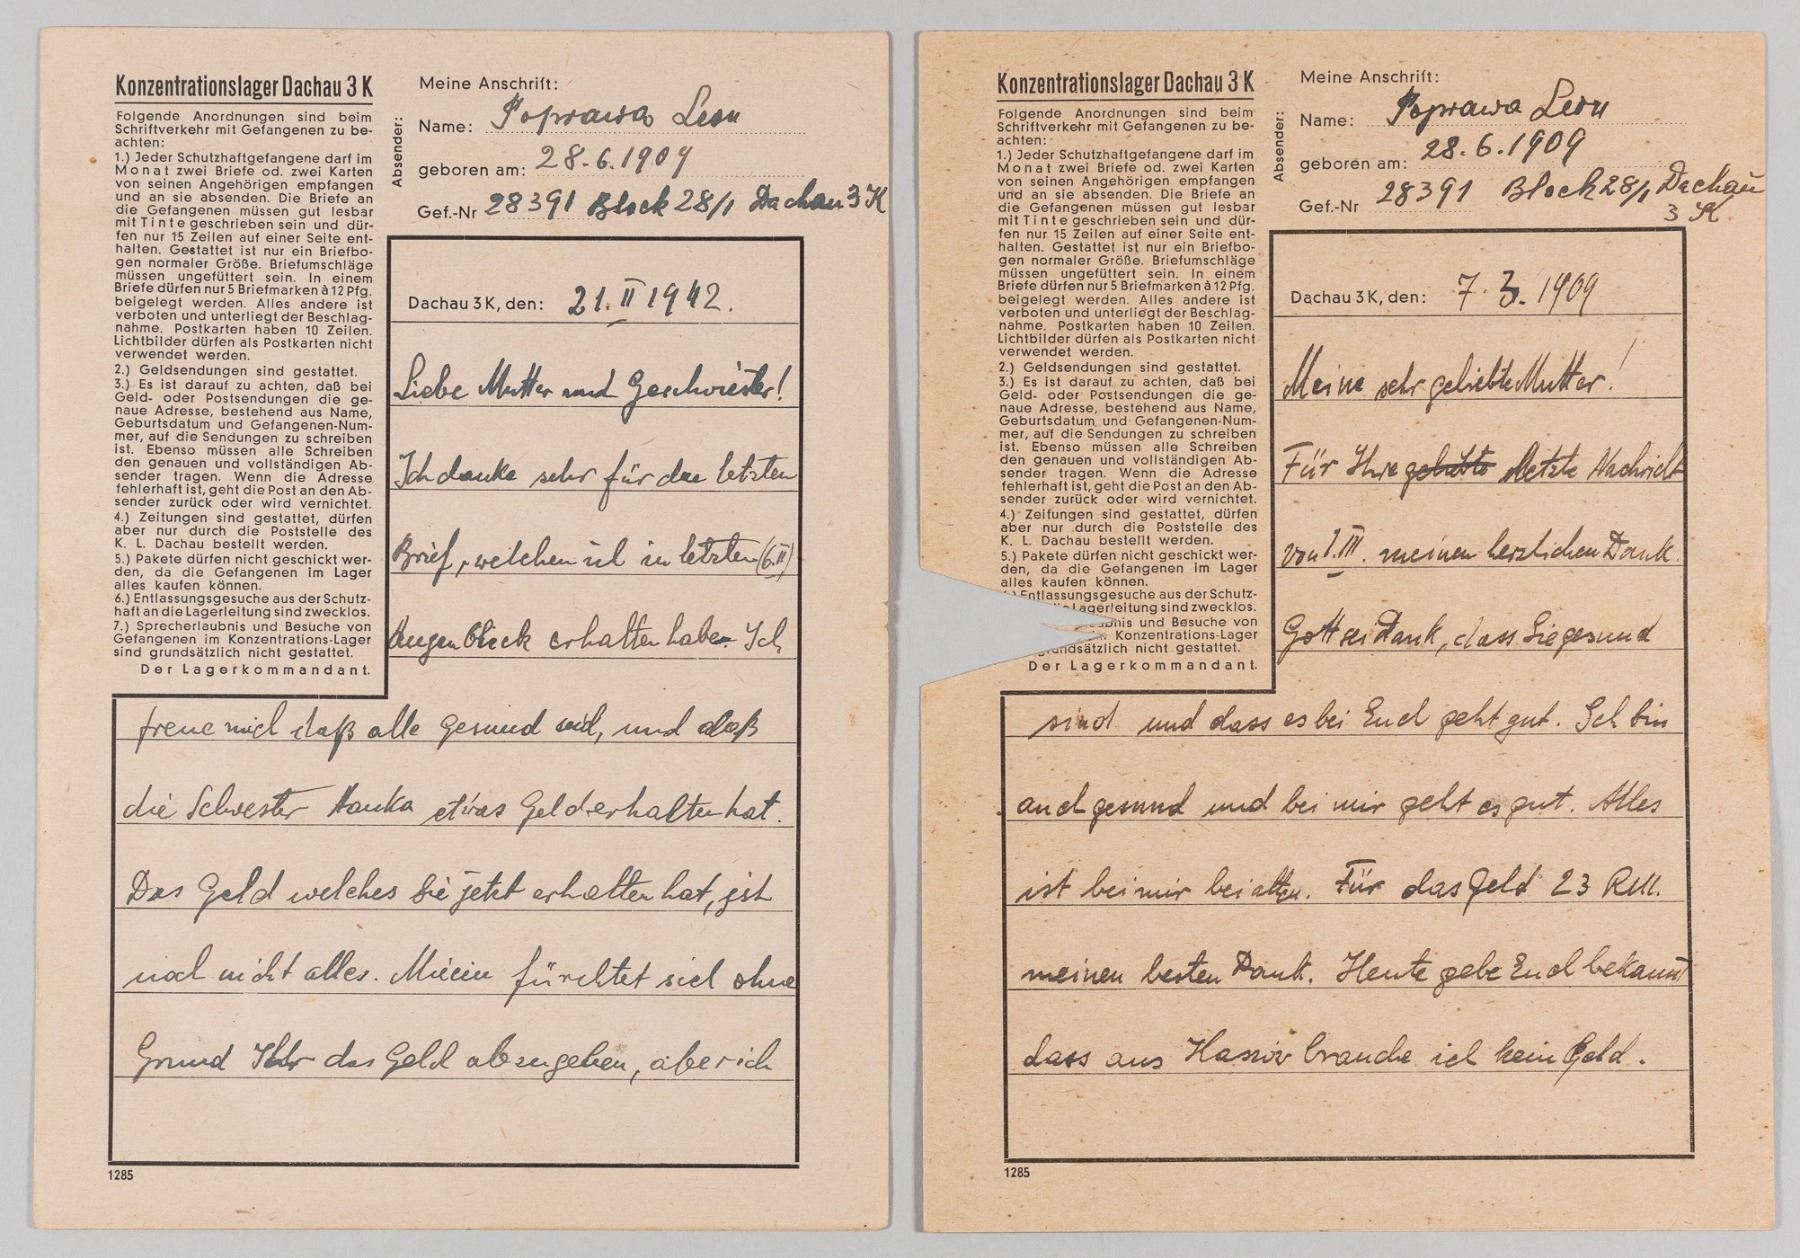 Konzentrationslager Dachau 3 K
Folgende Anordnungen sind beim
Schriftverkehr mit Gefangenen zu be-
achten:
1.) Jeder Schutzhaftgefangene darf im
Monat zwei Briefe od. zwei Karten
von seinen Angehörigen empfangen
und an sie absenden. Die Briefe an
die Gefangenen müssen gut lesbar
mit Tinte geschrieben sein und dür-
fen nur 15 Zeilen auf einer Seite ent-
halten. Gestattet ist nur ein Briefbo-
gen normaler Größe. Briefumschläge
müssen ungefüttert sein. In einem
Briefe dürfen nur 5 Briefmarken à 12 Pfg.
beigelegt werden. Alles andere ist
verboten und unterliegt der Beschlag-
nahme. Postkarten haben 10 Zeilen.
Lichtbilder dürfen als Postkarten nicht
verwendet werden.
2.) Geldsendungen sind gestattet.
3.) Es ist darauf zu achten, daß bei
Geld- oder Postsendungen die ge-
naue Adresse, bestehend aus Name,
Geburtsdatum und Gefangenen-Num-
mer, auf die Sendungen zu schreiben
ist. Ebenso müssen alle Schreiben
den genauen und vollständigen Ab-
sender tragen. Wenn die Adresse
fehlerhaft ist, geht die Post an den Ab-
sender zurück oder wird vernichtet.
4.) Zeitungen sind gestattet, dürfen
aber nur durch die Poststelle des
K. L. Dachau bestellt werden.
5.) Pakete dürfen nicht geschickt wer-
den, da die Gefangenen im Lager
alles kaufen können.
6.) Entlassungsgesuche aus der Schutz-
haft an die Lagerleitung sind zwecklos.
7.) Sprecherlaubnis und Besuche von
Gefangenen im Konzentrations-Lager
sind grundsätzlich nicht gestattet.
Der Lagerkommandant.
Absender:
Meine Anschrift:
Name: Poprawa Leon
geboren am: 28.6.1909
Gef.-Nr 28391 Block 28/1 Dachau 3 K
Dachau 3 K, den: 21. II 1942.
Liebe Mutter und Geschwister!
Ich danke sehr für den letzten
Brief, welchen ich in letzten (6.II)
Augenblick erhalten habe. Ich
freue mich daß alle gesund sid, und daß
die Schwester Hanka etwas Geld erhalten hat.
Das Geld welches Sie jetzt erhalten hat, ist
noch nicht alles. fürchtet sich ohne
Grund Ihr das Geld abzugeben, aber ich
1285
Konzentrationslager Dachau 3 K
Folgende Anordnungen sind beim
Schriftverkehr mit Gefangenen zu be-
achten:
1.) Jeder Schutzhaftgefangene darf im
Monat zwei Briefe od. zwei Karten
von seinen Angehörigen empfangen
und an sie absenden. Die Briefe an
die Gefangenen müssen gut lesbar
mit Tinte geschrieben sein und dür-
fen nur 15 Zeilen auf einer Seite ent-
halten. Gestattet ist nur ein Briefbo-
gen normaler Größe. Briefumschläge
müssen ungefüttert sein. In einem
Briefe dürfen nur 5 Briefmarken à 12 Pfg.
beigelegt werden. Alles andere ist
verboten und unterliegt der Beschlag-
nahme. Postkarten haben 10 Zeilen.
Lichtbilder dürfen als Postkarten nicht
verwendet werden.
2.) Geldsendungen sind gestattet.
3.) Es ist darauf zu achten, daß bei
Geld- oder Postsendungen die ge-
naue Adresse, bestehend aus Name,
Geburtsdatum und Gefangenen-Num-
mer, auf die Sendungen zu schreiben
ist. Ebenso müssen alle Schreiben
den genauen und vollständigen Ab-
sender tragen. Wenn die Adresse
fehlerhaft ist, geht die Post an den Ab-
sender zurück oder wird vernichtet.
4.) Zeitungen sind gestattet, dürfen
aber nur durch die Poststelle des
K. L. Dachau bestellt werden.
5.) Pakete dürfen nicht geschickt wer-
den, da die Gefangenen im Lager
alles kaufen können.
Entlassungsgesuche aus der Schutz-
Lagerleitung sind zwecklos.
und Besuche von
Konzentrations-Lager
nicht gestattet.
Der Lagerkommandant.
Absender:
Meine Anschrift:
Name: Poprawa Leon
geboren am: 28.6.1909
Gef.-Nr 28391 Block 28/1 Dachau
3 K
Dachau 3 K, den: 7. 3. 1909
Meine sehr geliebte Mutter!
Für Ihre geliebte letzte Nachricht
von 1. III. meinen herzlichen Dank.
Gott sei Dank, dass Sie gesund
sind und dass es bei Euch geht gut. Ich bin
auch gesund und bei mir geht es gut. Alles
ist bei mir bei alten. Für das Geld 23 RM.
meinen besten Dank. Heute gebe Euch bekannt
dass aus brauche ich kein Geld.
1285